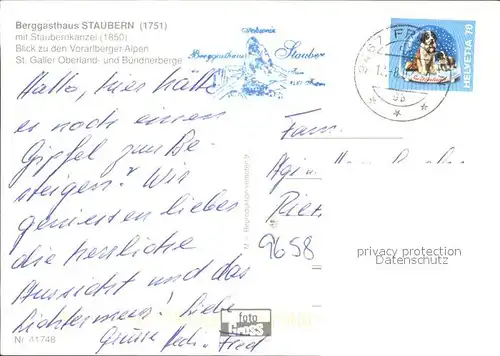 Berggasthaus STAUBERN (1751)
mit Staubernkanzel (1850)
Blick zu den Vorarlberger Alpen
St. Galler Oberland- und Bündnerberge
Schweiz
Berggasthaus Staubern
9467 FR
HELVETIA 70
Hallo, hier hätte
es noch einen
Gipfel zum Be-
steigen? Wir
geniessen lieber
die herrliche
Aussicht und das
Lichtermeer! Liebe
Grüsse Hedi + Fred
Fam.
9658
privacy protection
Datenschutz
foto
Gross
Nr. 41748